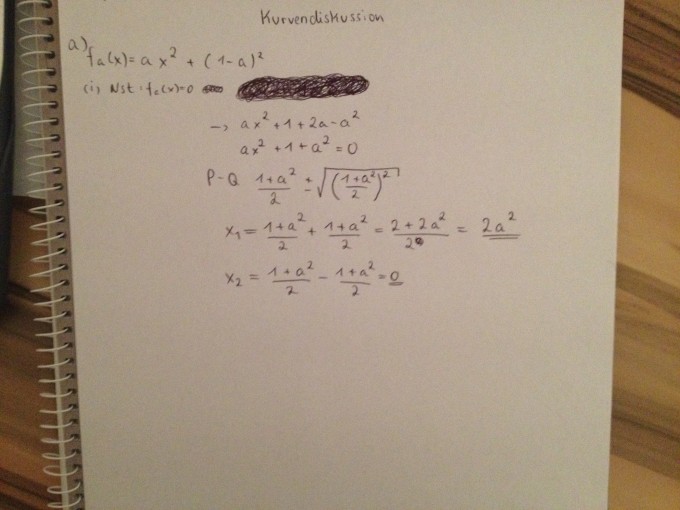 Kurvendiskussion
a) fa(x) = ax² + (1-a)²
(i) Nst: fa(x)=0
→ ax² + 1 + 2a - a²
ax² + 1 + a² = 0
P-Q (1+a²)/2 ± √(((1+a²)/2)²)
x₁ = (1+a²)/2 + (1+a²)/2 = (2+2a²)/2 = 2a²
x₂ = (1+a²)/2 - (1+a²)/2 = 0